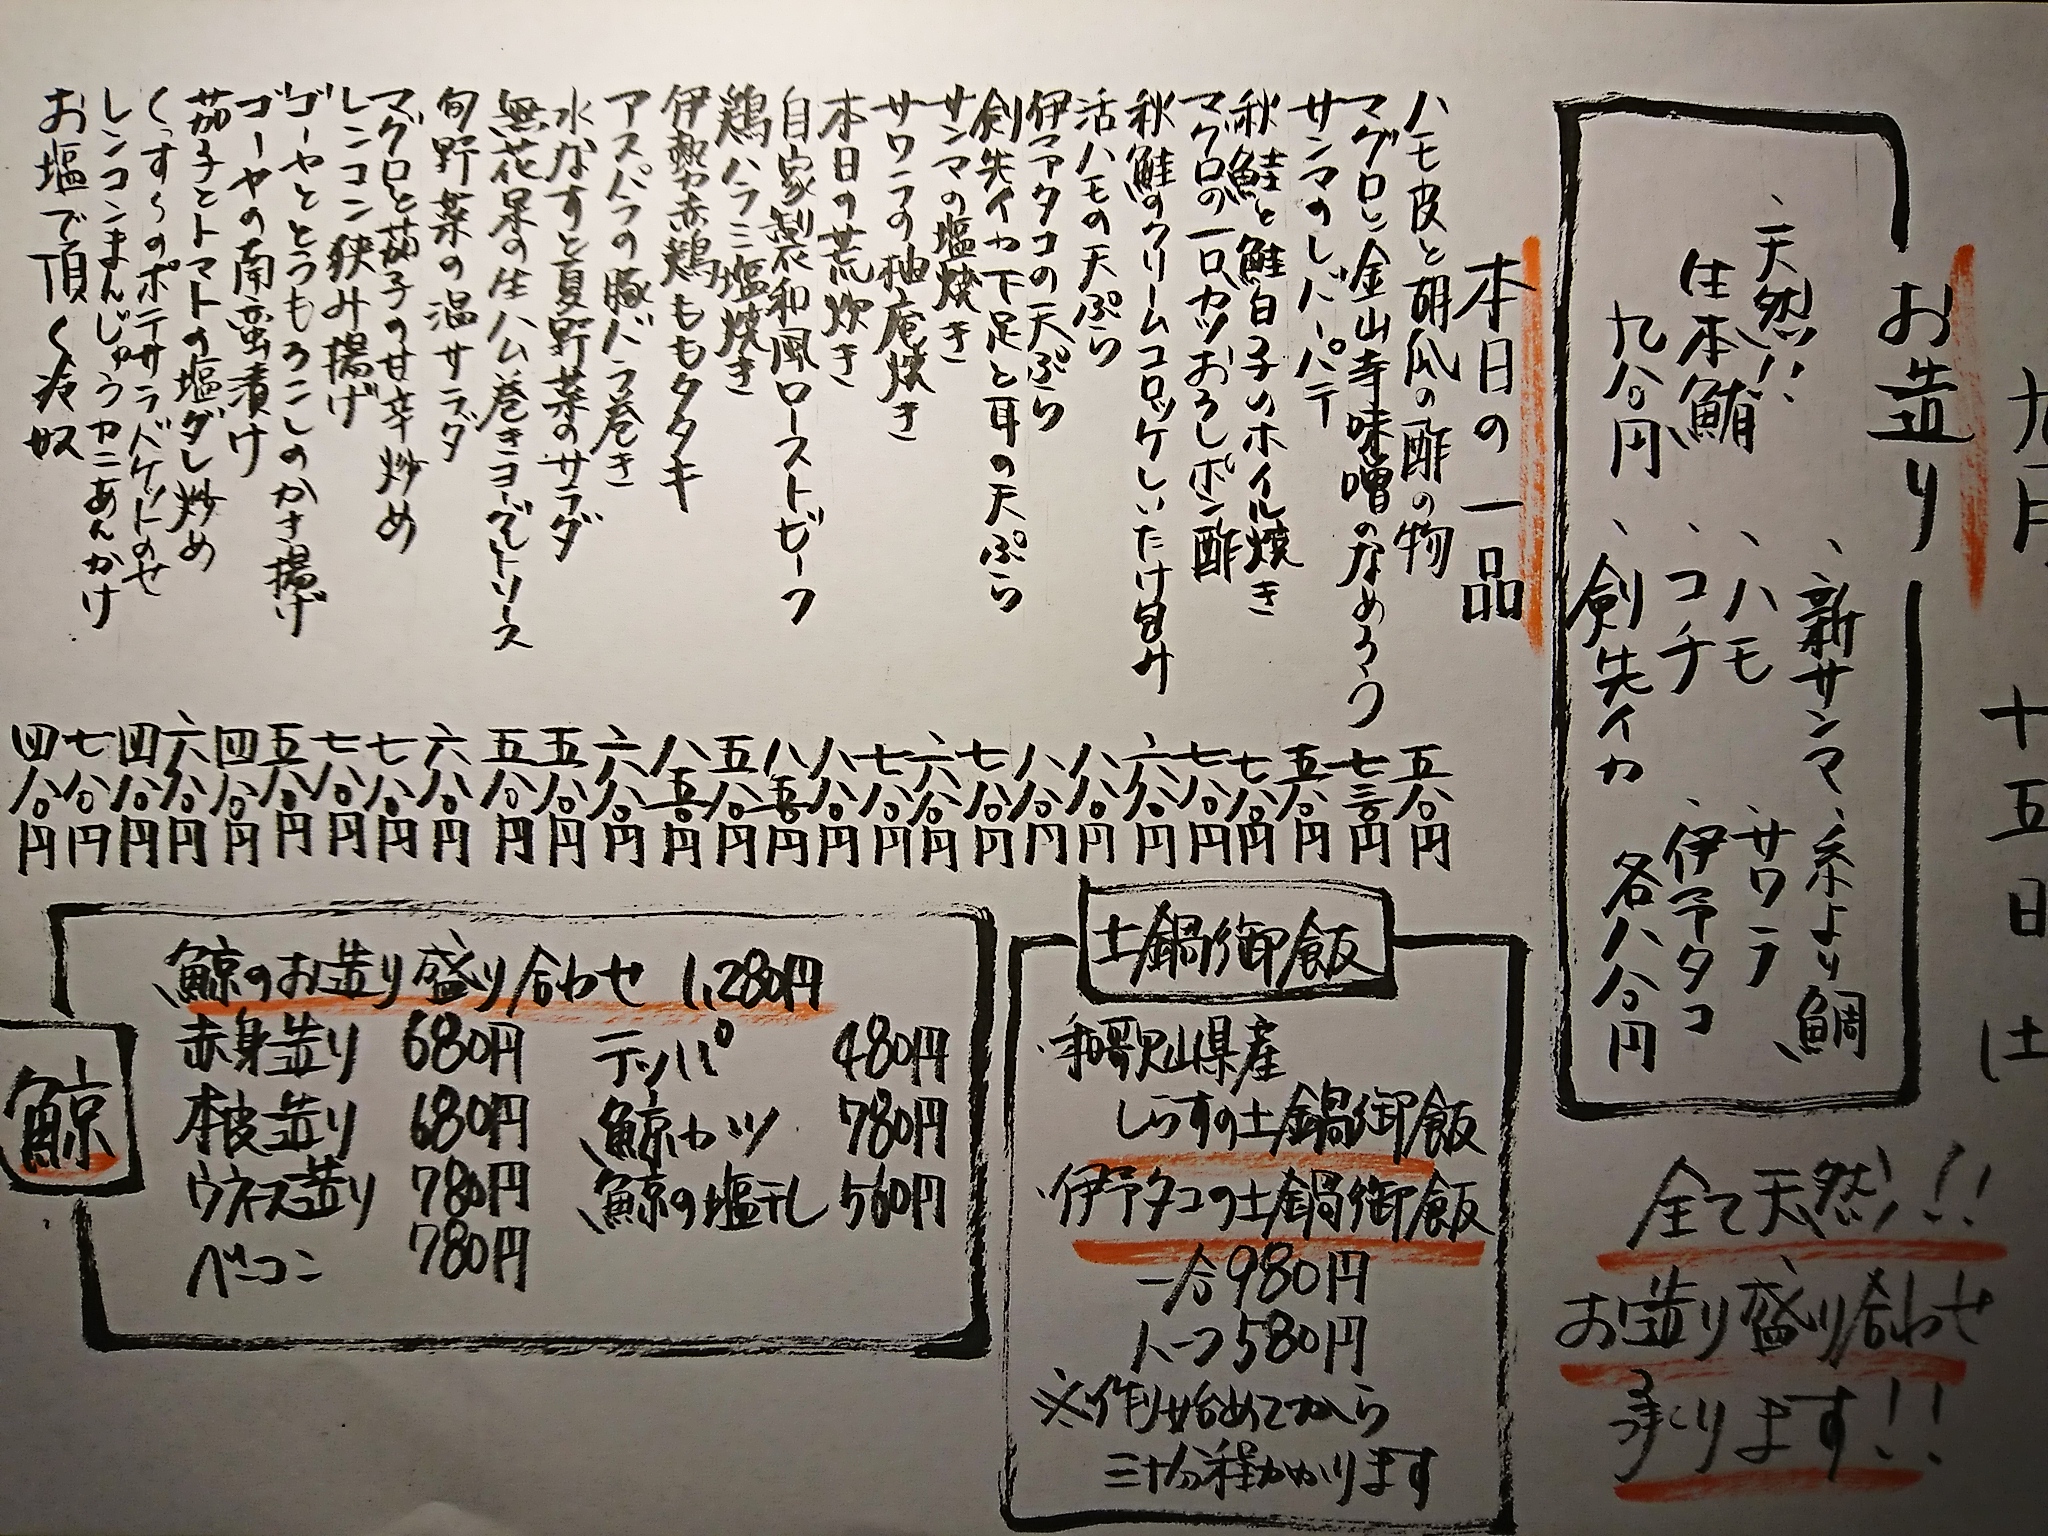 九月 十五日 土
お造り
、天然!!
生本鮪
九八〇円
、新サンマ
、糸より鯛
、ハモ
、サワラ
、コチ
、伊予タコ
、剣先イカ
各八八〇円
全て天然!!
お造り盛り合わせ
承ります!!
本日の一品
ハモ皮と胡瓜の酢の物 五八〇円
マグロと金山寺味噌のなめろう 七三〇円
サンマのレバーパテ 五八〇円
秋鮭と鮭白子のホイル焼き 七八〇円
マグロの一口カツおろしポン酢 七八〇円
秋鮭のクリームコロッケしいたけ包み 六八〇円
活ハモの天ぷら 八八〇円
伊予タコの天ぷら 八八〇円
剣先イカ下足と耳の天ぷら 七八〇円
サンマの塩焼き 六八〇円
サワラの柚庵焼き 七八〇円
本日の荒炊き 八八〇円
自家製和風ローストビーフ 八五〇円
鶏ハラミ塩焼き 五八〇円
伊勢赤鶏ももタタキ 八五〇円
アスパラの豚バラ巻き 六八〇円
水なすと夏野菜のサラダ 五八〇円
無花果の生ハム巻きヨーグルトソース 五八〇円
旬野菜の温サラダ 六八〇円
マグロと茄子の甘辛炒め 七八〇円
レンコン狭み揚げ 七八〇円
ゴーヤととうもろこしのかき揚げ 五八〇円
ゴーヤの南蛮漬け 四八〇円
茄子とトマトの塩ダレ炒め 六八〇円
くっすんのポテサラバケットのせ 四八〇円
レンコンまんじゅうカニあんかけ 七八〇円
お塩で頂く冷奴 四八〇円
土鍋御飯
・和歌山県産
しらすの土鍋御飯
・伊予タコの土鍋御飯
一合980円
ハーフ580円
※作り始めてから
三十分程かかります
鯨
鯨のお造り盛り合わせ 1,280円
赤身造り 680円 テッパ 480円
本皮造り 680円 鯨カツ 780円
ウネス造り 780円 鯨の塩干し 560円
ベーコン 780円